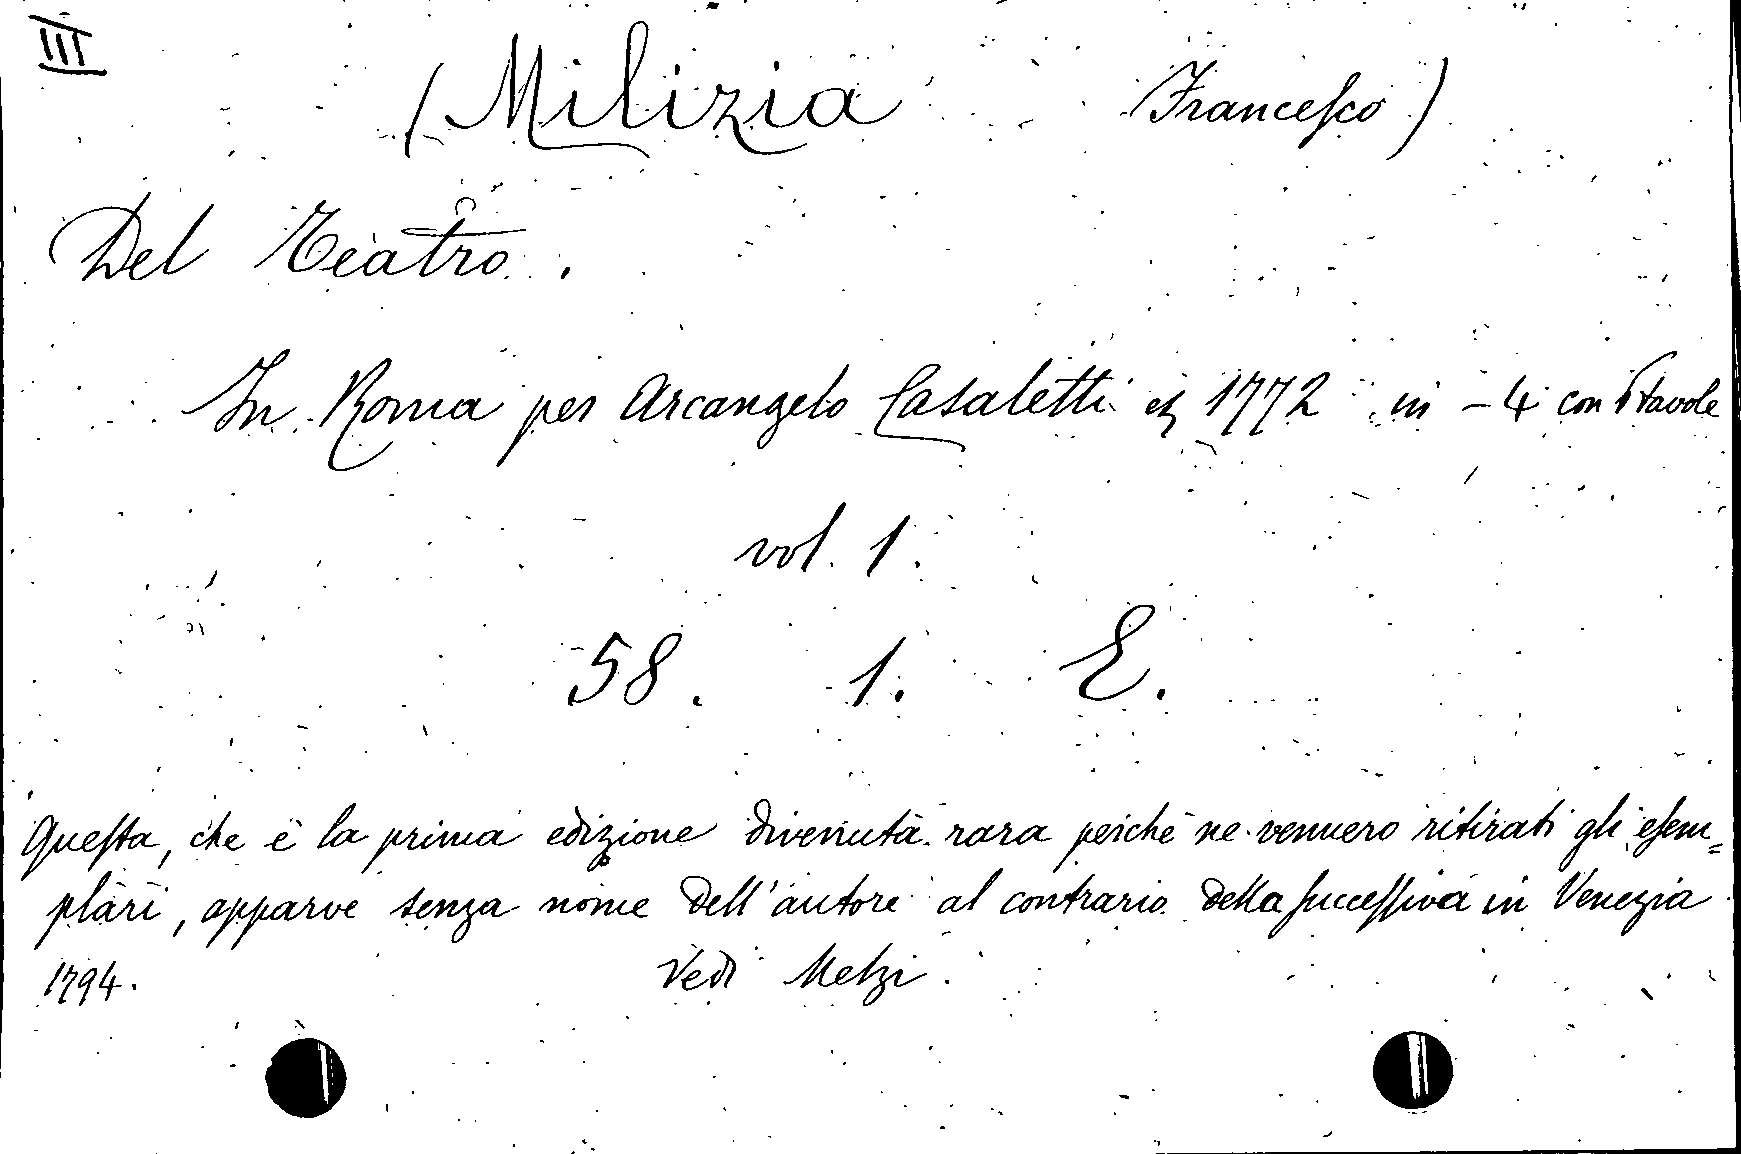 III
(Milizia Francesco)
Del Teatro.
In Roma per Arcangelo Casaletti 1772 in-4 con tavole
vol. 1.
58. 1. E.
Questa, che è la prima edizione divenuta rara perchè ne vennero ritirati gli esem=
plari, apparve senza nome dell'autore al contrario della successiva in Venezia
1794. Vedi Melzi.